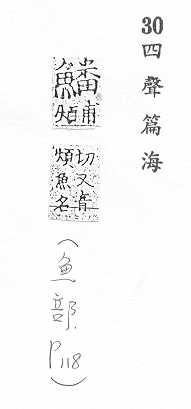 30四聲篇海
鱕甫煩
切又音
煩魚名
（魚部. P118）